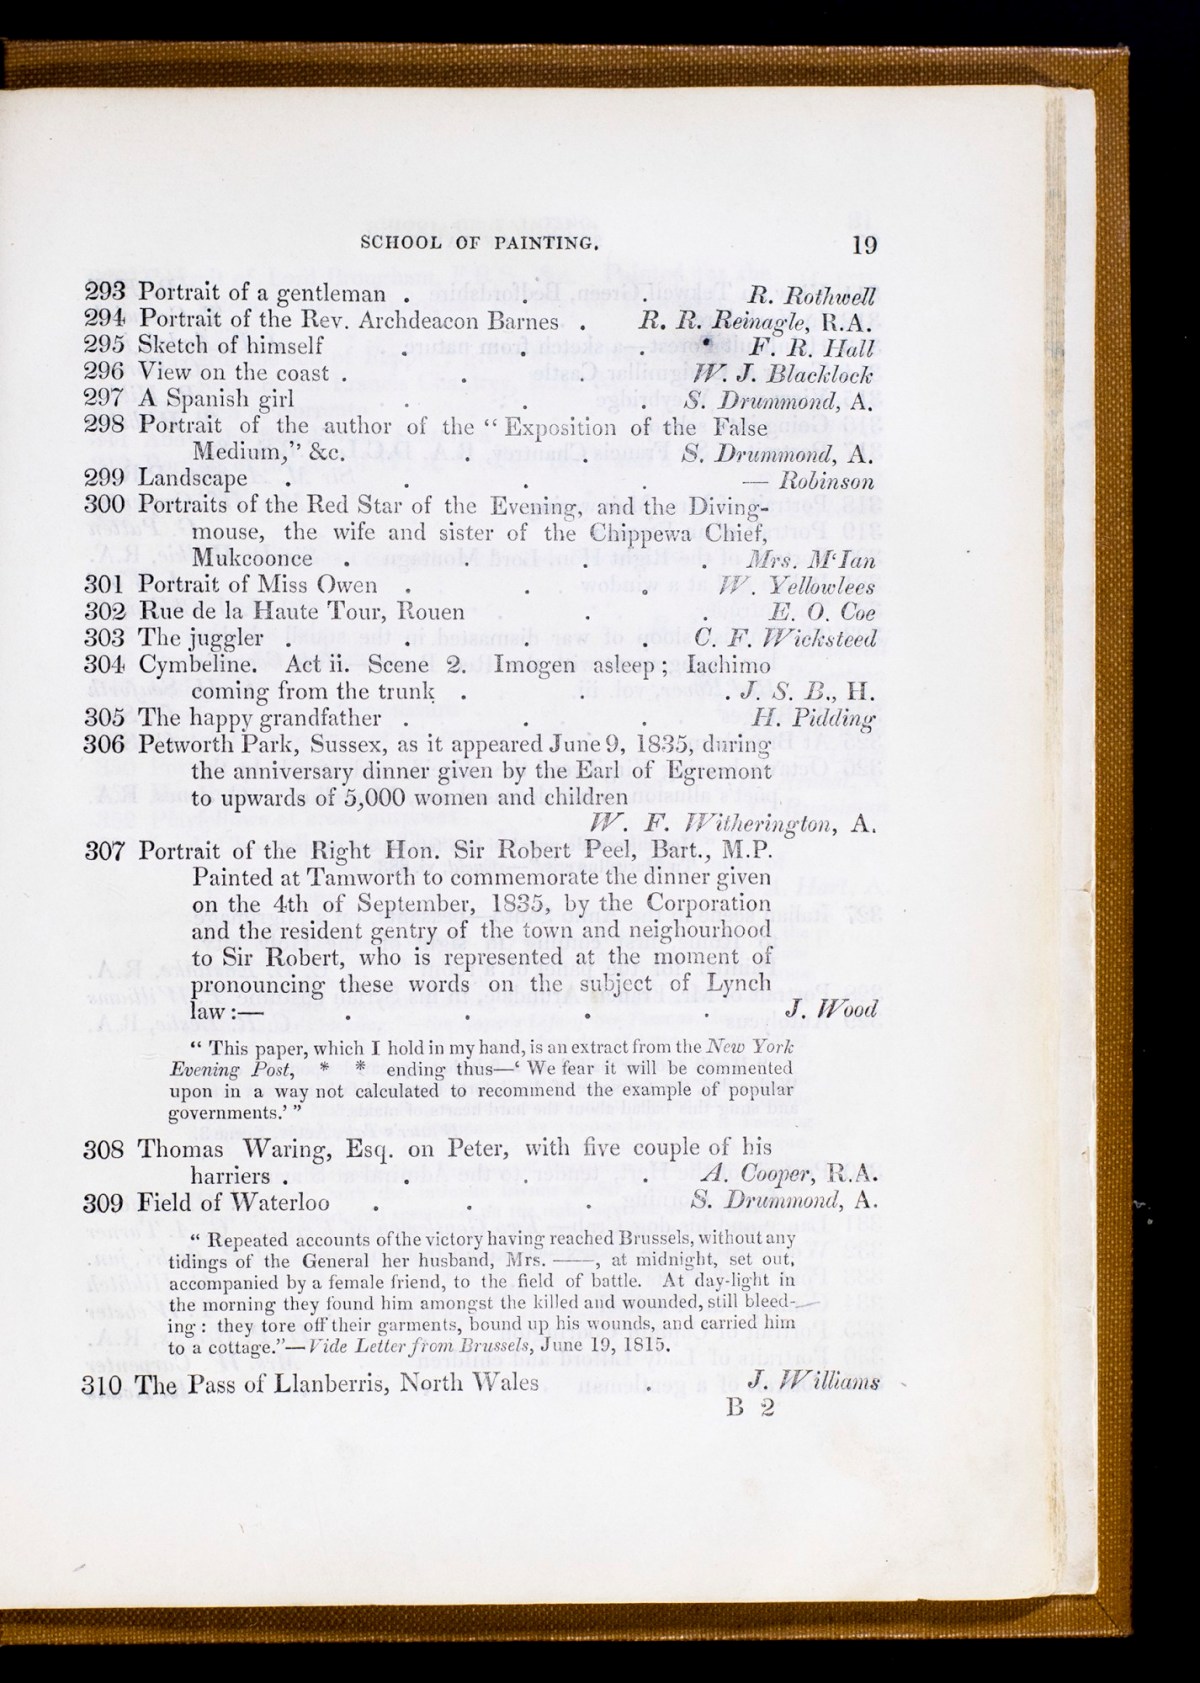 SCHOOL OF PAINTING. 19
293 Portrait of a gentleman . . . R. Rothwell
294 Portrait of the Rev. Archdeacon Barnes . R. R. Reinagle, R.A.
295 Sketch of himself . . . F. R. Hall
296 View on the coast . . . W. J. Blacklock
297 A Spanish girl . . . S. Drummond, A.
298 Portrait of the author of the “ Exposition of the False
Medium,” &c. . . S. Drummond, A.
299 Landscape . . . . — Robinson
300 Portraits of the Red Star of the Evening, and the Diving-
mouse, the wife and sister of the Chippewa Chief,
Mukcoonce . . . . Mrs. M‘Ian
301 Portrait of Miss Owen . . . W. Yellowlees
302 Rue de la Haute Tour, Rouen . . E. O. Coe
303 The juggler . . . . C. F. Wicksteed
304 Cymbeline. Act ii. Scene 2. Imogen asleep ; Iachimo
coming from the trunk . . . J. S. B., H.
305 The happy grandfather . . . H. Pidding
306 Petworth Park, Sussex, as it appeared June 9, 1835, during
the anniversary dinner given by the Earl of Egremont
to upwards of 5,000 women and children
W. F. Witherington, A.
307 Portrait of the Right Hon. Sir Robert Peel, Bart., M.P.
Painted at Tamworth to commemorate the dinner given
on the 4th of September, 1835, by the Corporation
and the resident gentry of the town and neighourhood
to Sir Robert, who is represented at the moment of
pronouncing these words on the subject of Lynch
law :— . . . . J. Wood
“ This paper, which I hold in my hand, is an extract from the New York
Evening Post, * * ending thus—‘ We fear it will be commented
upon in a way not calculated to recommend the example of popular
governments.’ ”
308 Thomas Waring, Esq. on Peter, with five couple of his
harriers . . . . A. Cooper, R.A.
309 Field of Waterloo . . . S. Drummond, A.
“ Repeated accounts of the victory having reached Brussels, without any
tidings of the General her husband, Mrs. ——, at midnight, set out,
accompanied by a female friend, to the field of battle. At day-light in
the morning they found him amongst the killed and wounded, still bleed-
ing : they tore off their garments, bound up his wounds, and carried him
to a cottage.”—Vide Letter from Brussels, June 19, 1815.
310 The Pass of Llanberris, North Wales . J. Williams
B 2